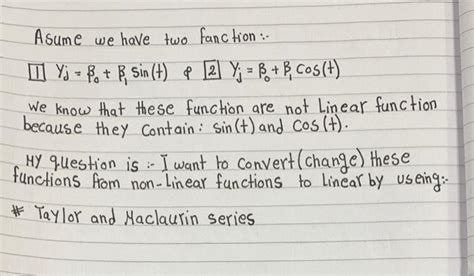 Asume we have two fanction :-
[1] Yj = β₀ + β₁ Sin(t) & [2] Yj = β₀ + β₁ Cos(t)
We know that these function are not Linear function
because they contain : sin(t) and cos(t).
My question is :- I want to convert (change) these
functions from non-Linear functions to Linear by useing:-
* Taylor and Maclaurin series